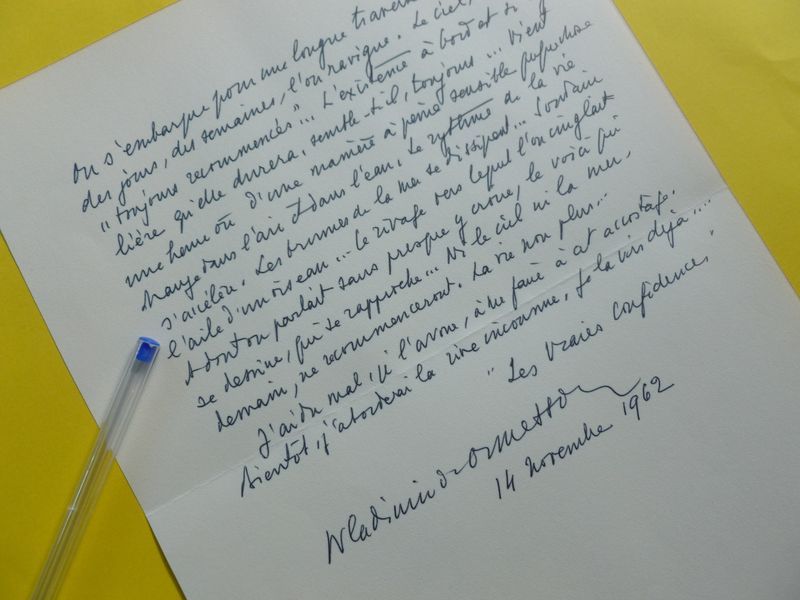 On s'embarque pour une longue traversée
des jours, des semaines, l'on navigue. Le ciel,
"toujours recommencés"... L'existence à bord est si
lière qu'elle durera, semble-t-il, toujours... Vient
une heure où d'une manière à peine sensible quelque chose
change dans l'air et dans l'eau. Le rythme de la vie
s'accélère. Les brumes de la mer se dissipent... Soudain
l'aile d'un oiseau... Le rivage vers lequel l'on cinglait
et dont on parlait sans presque y croire, le voici qui
se dessine, qui se rapproche... Ni le ciel ni la mer,
demain, ne recommenceront. La vie non plus...
J'ai du mal, je l'avoue, à me faire à cet accostage.
Bientôt j'aborderai la rive inconnue. Je la vois déjà....
"Les vraies confidences"
Wladimir d'Ormesson
14 novembre 1962